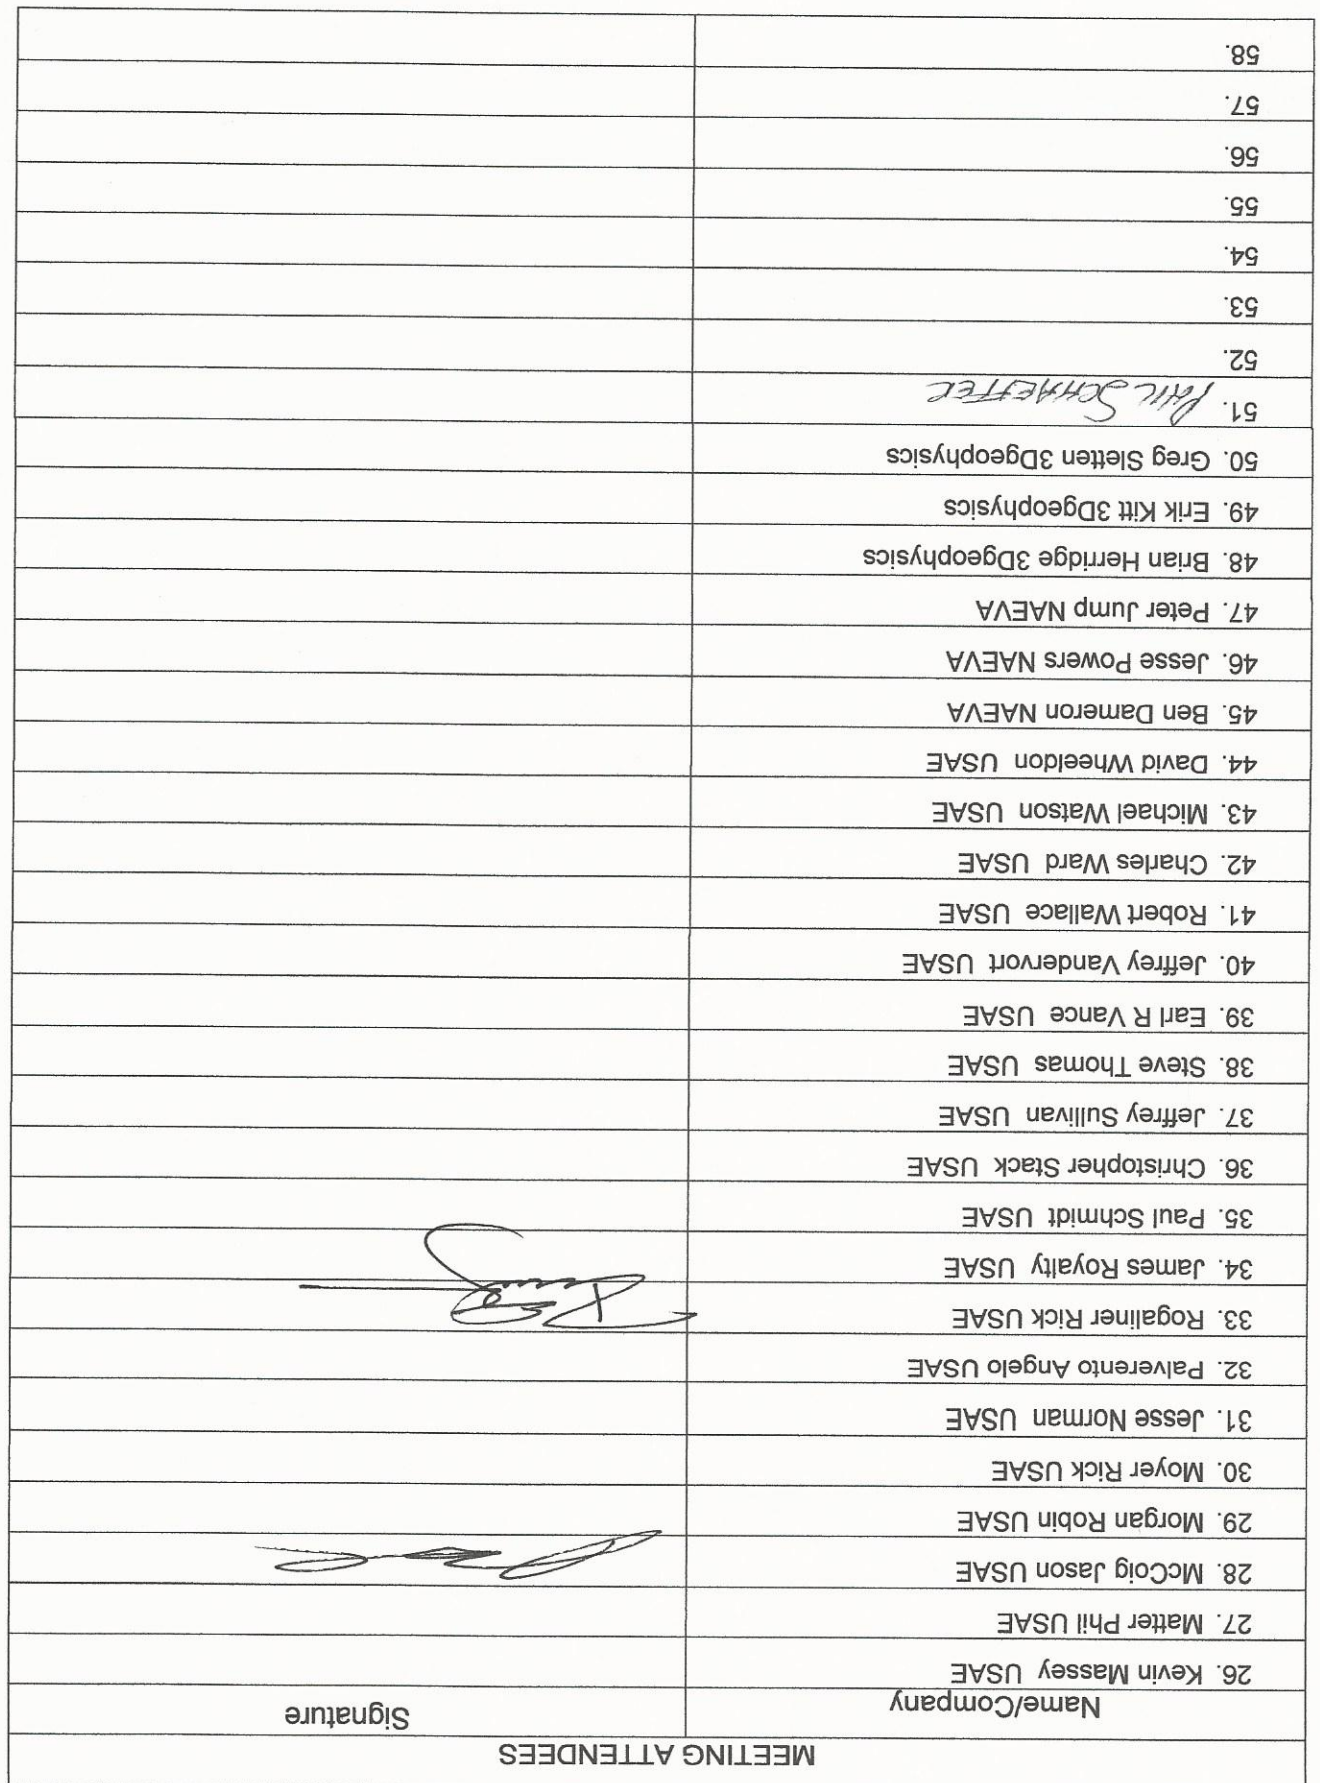 MEETING ATTENDEES
Name/Company Signature
26. Kevin Massey USAE
27. Matter Phil USAE
28. McCoig Jason USAE
29. Morgan Robin USAE
30. Moyer Rick USAE
31. Jesse Norman USAE
32. Palverento Angelo USAE
33. Rogaliner Rick USAE
34. James Royalty USAE
35. Paul Schmidt USAE
36. Christopher Stack USAE
37. Jeffrey Sullivan USAE
38. Steve Thomas USAE
39. Earl R Vance USAE
40. Jeffrey Vandervort USAE
41. Robert Wallace USAE
42. Charles Ward USAE
43. Michael Watson USAE
44. David Wheeldon USAE
45. Ben Dameron NAEVA
46. Jesse Powers NAEVA
47. Peter Jump NAEVA
48. Brian Herridge 3Dgeophysics
49. Erik Kitt 3Dgeophysics
50. Greg Sletten 3Dgeophysics
51. PHIL SCHAEFFER
52.
53.
54.
55.
56.
57.
58.